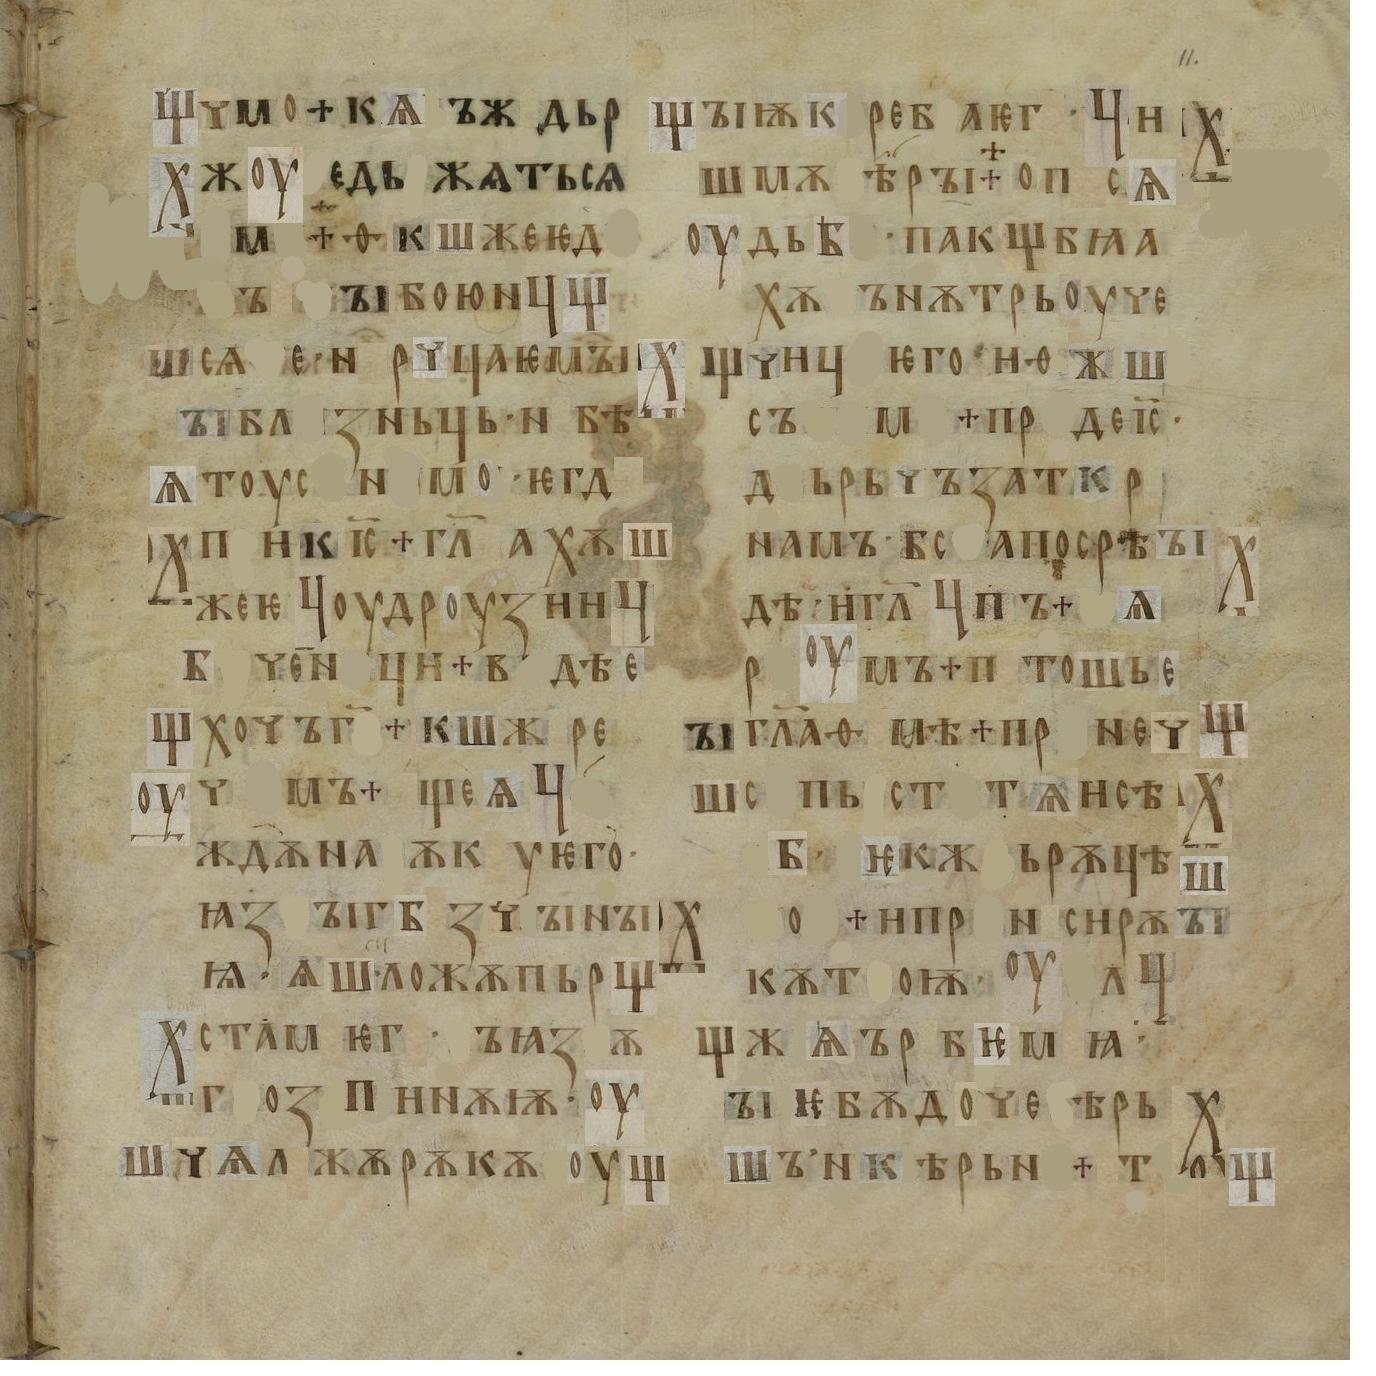 ѰҮМО+КѦ ЪЖ ДЬР
ХЖОУ ЕДЬ ЖѦТЬСѦ
М +Ѳ КШЖЕѤД
Ъ ЪІБОЮНЧѰ
ШСѦ Е·Н РҮЦАѤМЪІХ
ЪІБЛ ЗНЬЦЬ·Н БѢ
ѦТОУС Н МО·ѤГД
ХП НК ІС+ГЛ АХѪШ
ЖЕѤ ЧОУДРОУЗННЧ
Б ҮЕН ЦН+В ДѢЕ
ѰХОҮЪГ +КШЖ РЕ
ОУҮ МЪ+ ѰЕѦЧ
ЖДѪНА ѪК УѤГО·
ꙖЗ ЪІГБ ЗҮ ЪІНЪІХ
Ꙗ· ѦШ·ЛОЖѪПЬРѰ
ХСТАМ ѤГ · ЪꙖЗ Ѫ
Г ОЗ П ННѪѬ·ОУ
ШҮѦЛ ЖѪРѪКѪ ОУѰ
ѰЪІѬК РЕБ АѤГ · ЧН Х
ШМѪ ѢРЪІ+ОП СѦ
ОУДЬБ ·ПАКѰБꙖА
ХѪ ЪНѪТРЬОУҮЕ
ѰҮНЧ ѤГО·Н·Ѳ ЖШ
СЪ М +ПР ДЕІС·
Д ЬРЬҮЪЗАТКР
НАМЪ·БС АПОСРѢЪІХ
ДѢ·НГЛ ЧПЪ+ Ѧ
Р ОУМЪ+П ТОШЬЕ
ЪІГЛАѲ МѢ+ПР НЕҮѰ
ШС ПЬ СТ ТѪНСѢ Х
Б· ѤКЖ ЬРѪЦѢШ
О +НПР Н СНРѪЪІ
КѪТ ОѬ· ОУ ЛЧ
ѰЖ ѦЪР БѤМ Ꙗ·
ЪІ ѤБѪДОҮЕ ѢРЬ Х
ШЪ·НК ѢРЬН + Т Ѱ